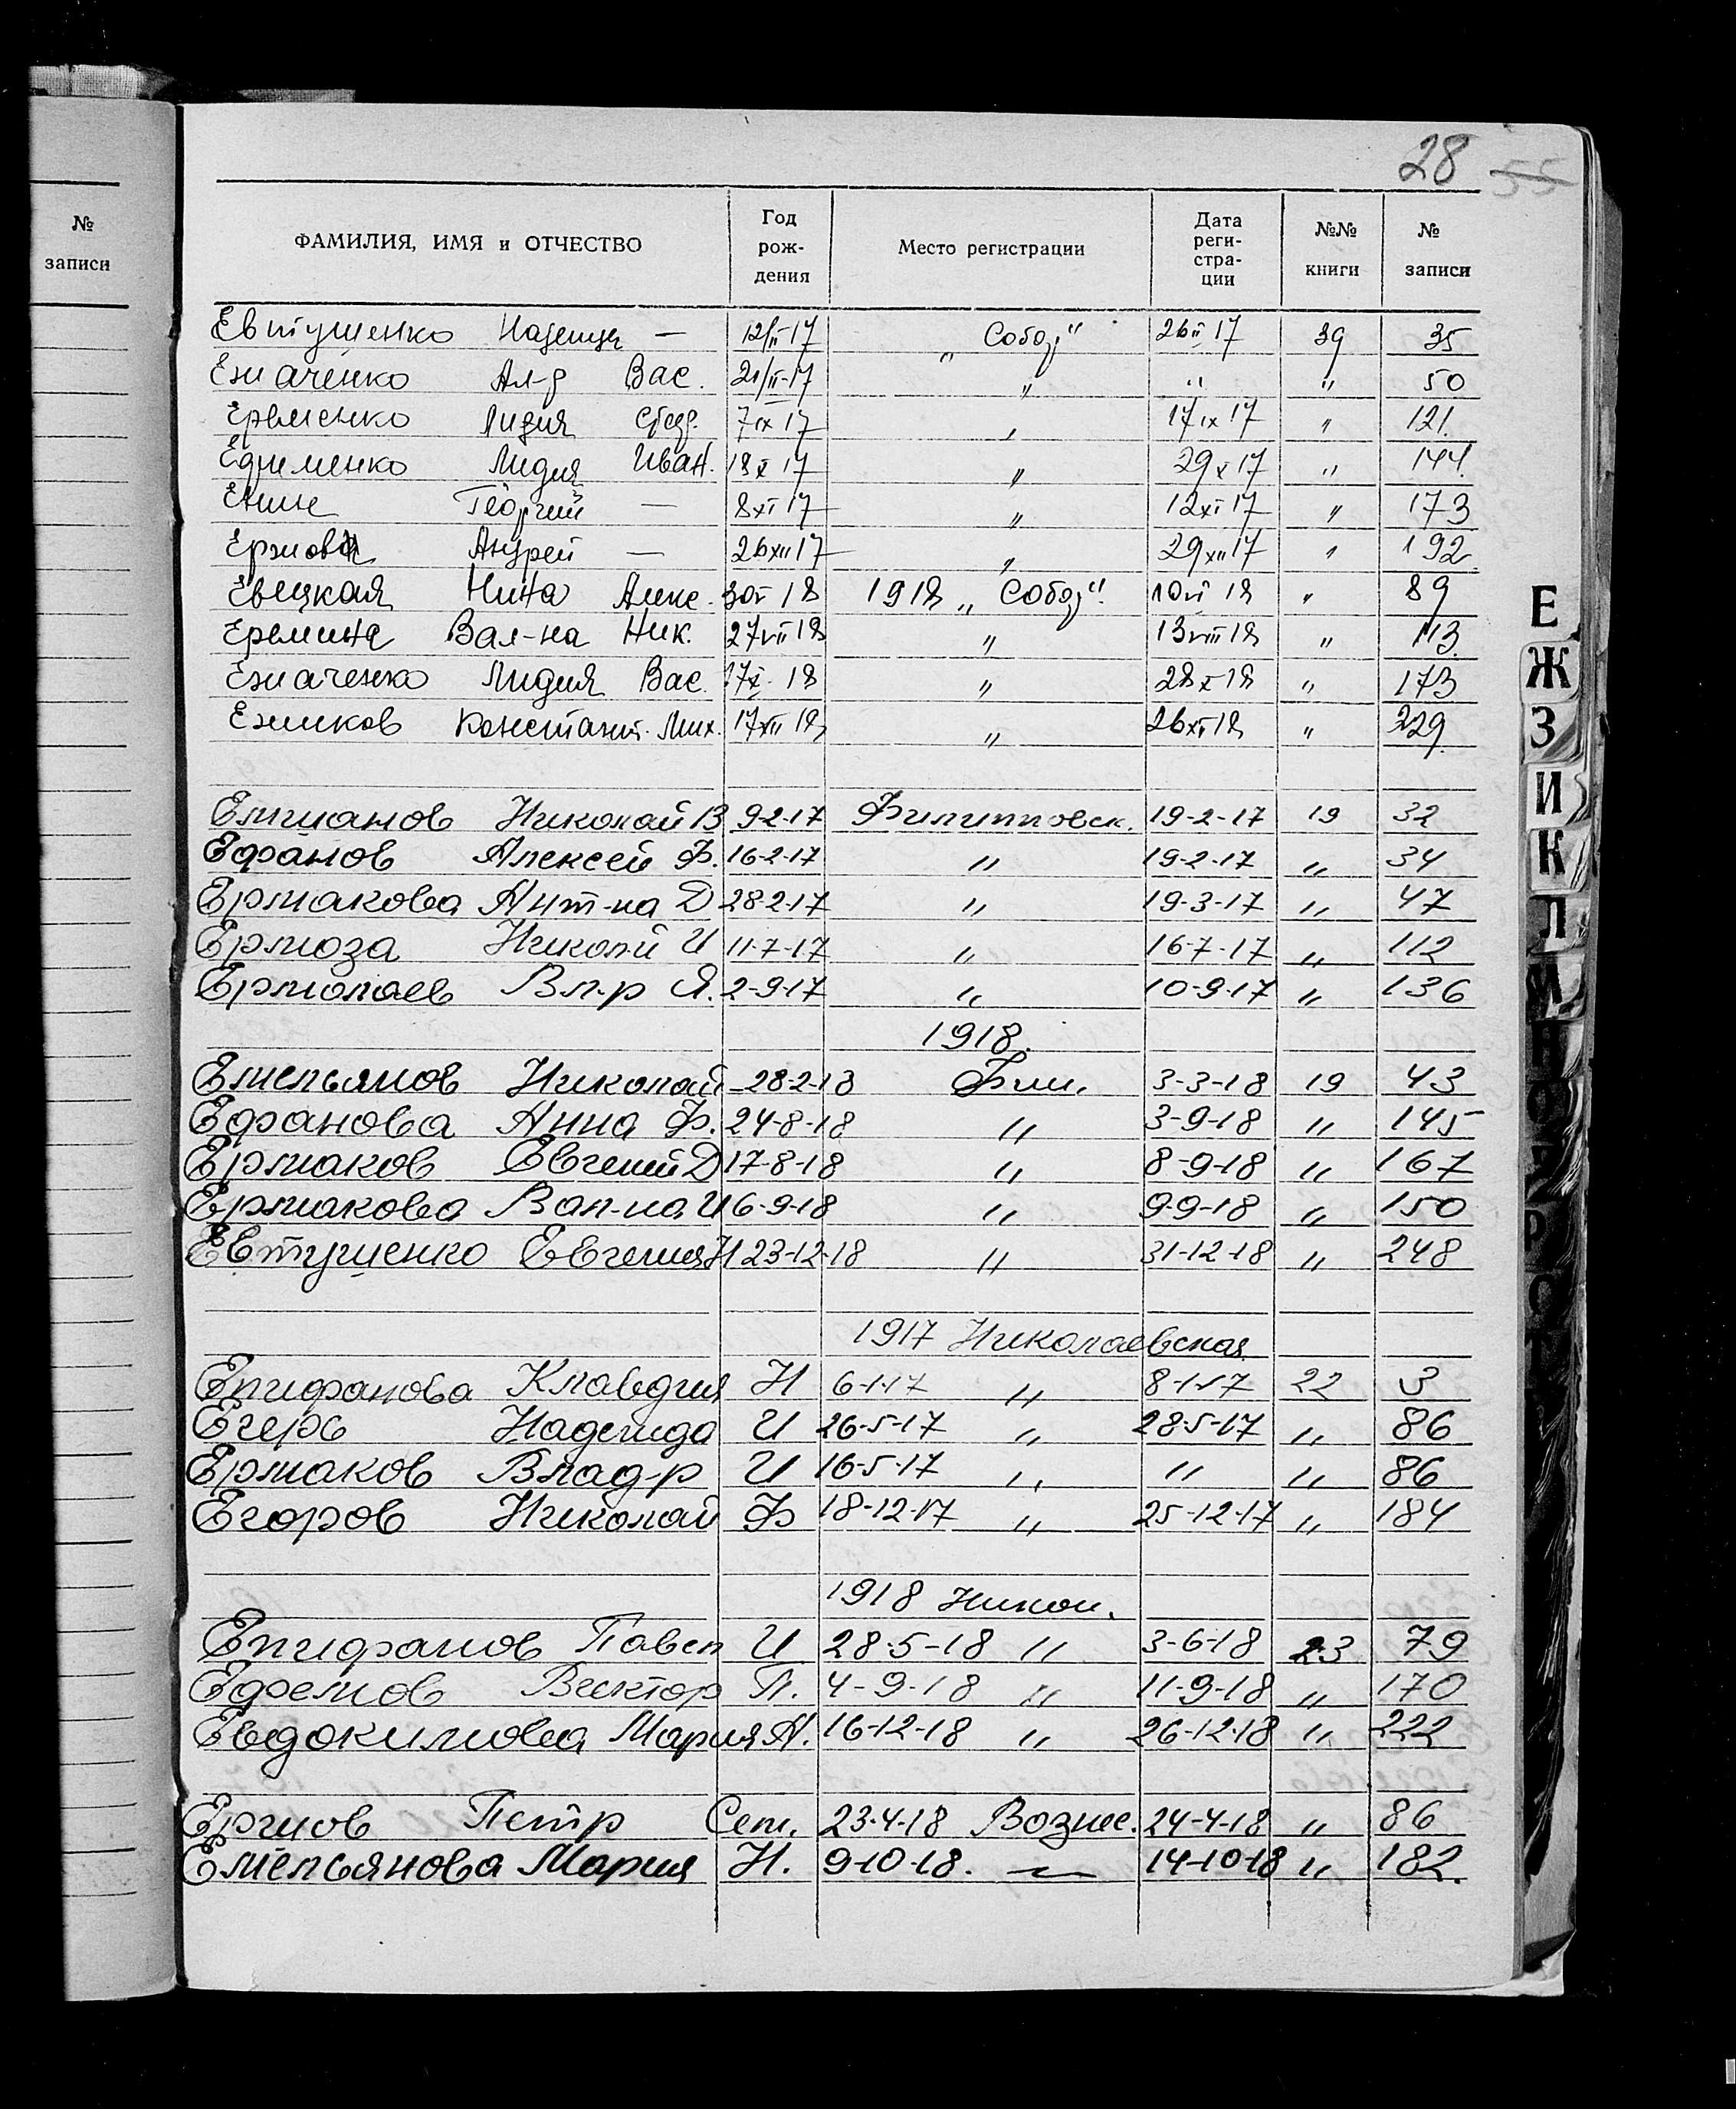 28 55
№ записи
ФАМИЛИЯ, ИМЯ и ОТЧЕСТВО Год рож-дения Место регистрации Дата реги-стра-ции №№ книги № записи
Евтушенко Надежда — 12/II 17 „Собор" 26 II 17 39 35
Ал-р Вас. 21/II-17 „ „ „ 50
Еременко Лидия 7 IX 17 „ 17 IX 17 „ 121
Ефименко Лидия Иван. 18 X 17 „ 29 X 17 „ 144
Георгий — 8 XI 17 „ 12 XI 17 „ 173
Андрей — 26 XII 17 „ 29 XII 17 „ 192
Евецкая Нина 1918 „Собор" „ 89
Еремина Вал-на Ник. 27 VII 18 „ 13 VIII 18 „ 113
Лидия Вас. 17 X 18 „ 28 X 18 „ 173
Константин. Мих. „ „ 329
Николай В 9-2-17 Филипповск. 19-2-17 19 32
Ефанов Алексей Ф. 16-2-17 „ 19-2-17 „ 34
Ермакова Ант-на Д 28-2-17 „ 19-3-17 „ 47
Ермоза И 11-7-17 „ 16-7-17 „ 112
Ермолаев Вл-р Я. 2-9-17 „ 10-9-17 „ 136
1918.
Емельянов Николай 28-2-18 Фил. 3-3-18 19 43
Ефанова Анна Ф. 24-8-18 „ 3-9-18 „ 145
Ермаков Евгений Д 17-8-18 „ 8-9-18 „ 167
Ермакова Вал-на И 6-9-18 „ 9-9-18 „ 150
Евтушенко Евгения Н 23-12-18 „ 31-12-18 „ 248
1917 Николаевская
Епифанова Клавдия Н 6-1-17 „ 8-1-17 22 3
Егерь Надежда И 26-5-17 „ 28-5-17 „ 86
Ермаков Влад-р И 16-5-17 „ „ „ 86
Егоров Николай Ф 18-12-17 „ 25-12-17 „ 184
1918 Никол.
Епифанов Павел И 28-5-18 „ 3-6-18 23 79
Ефемов Виктор П. 4-9-18 „ 11-9-18 „ 170
Евдокимова Мария А. 16-12-18 „ 26-12-18 „ 222
Петр Сем. 23-4-18 Вознес. 24-4-18 „ 86
Емельянова Мария Н. 9-10-18. — 14-10-18 „ 182.
Е
Ж
З
И
К
Л
М
Н
О
Р
С
Т